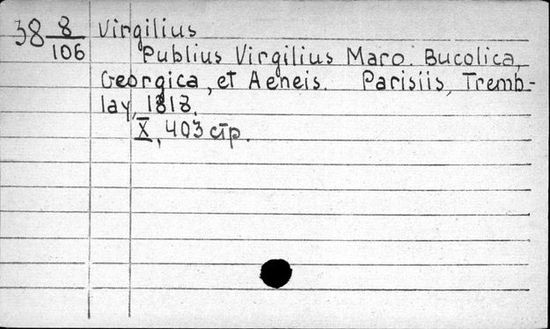 38 8/106 Virgilius
Publius Virgilius Maro. Bucolica,
Georgica, et Aeneis. Parisiis, Tremb-
lay, 1818.
X, 403 стр.